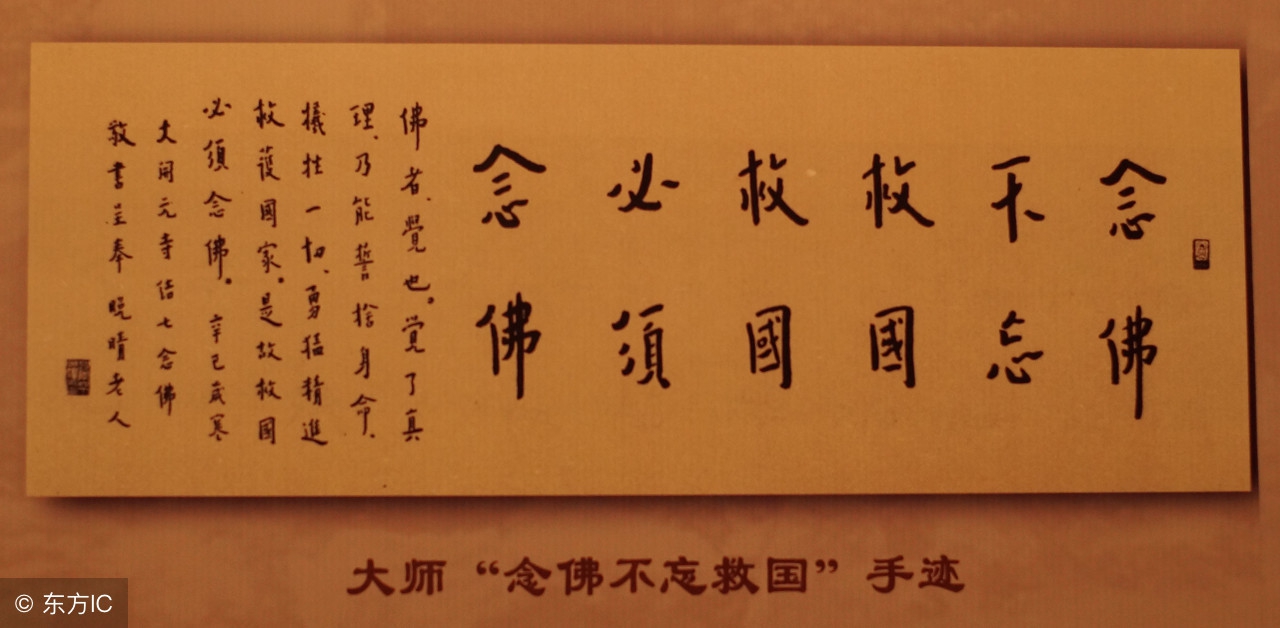 念佛
不忘
救國
救國
必須
念佛
佛者、覺也。覚了真
理、乃能誓捨身命、
犧牲一切、勇猛精進
救護國家。是故救國
必須念佛。辛巳歲寒
大開元寺结七念佛
敬書呈奉 晚晴老人
大师“念佛不忘救国”手迹
© 东方IC